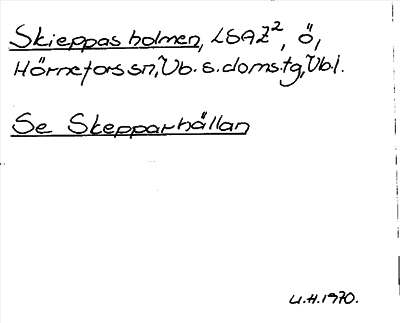 Skieppas holmen, LSAZ², Ö,
Hörnefors sn, Vb. s. doms.tg, Vb.l.
Se Skepparhällan
U.H. 1970.